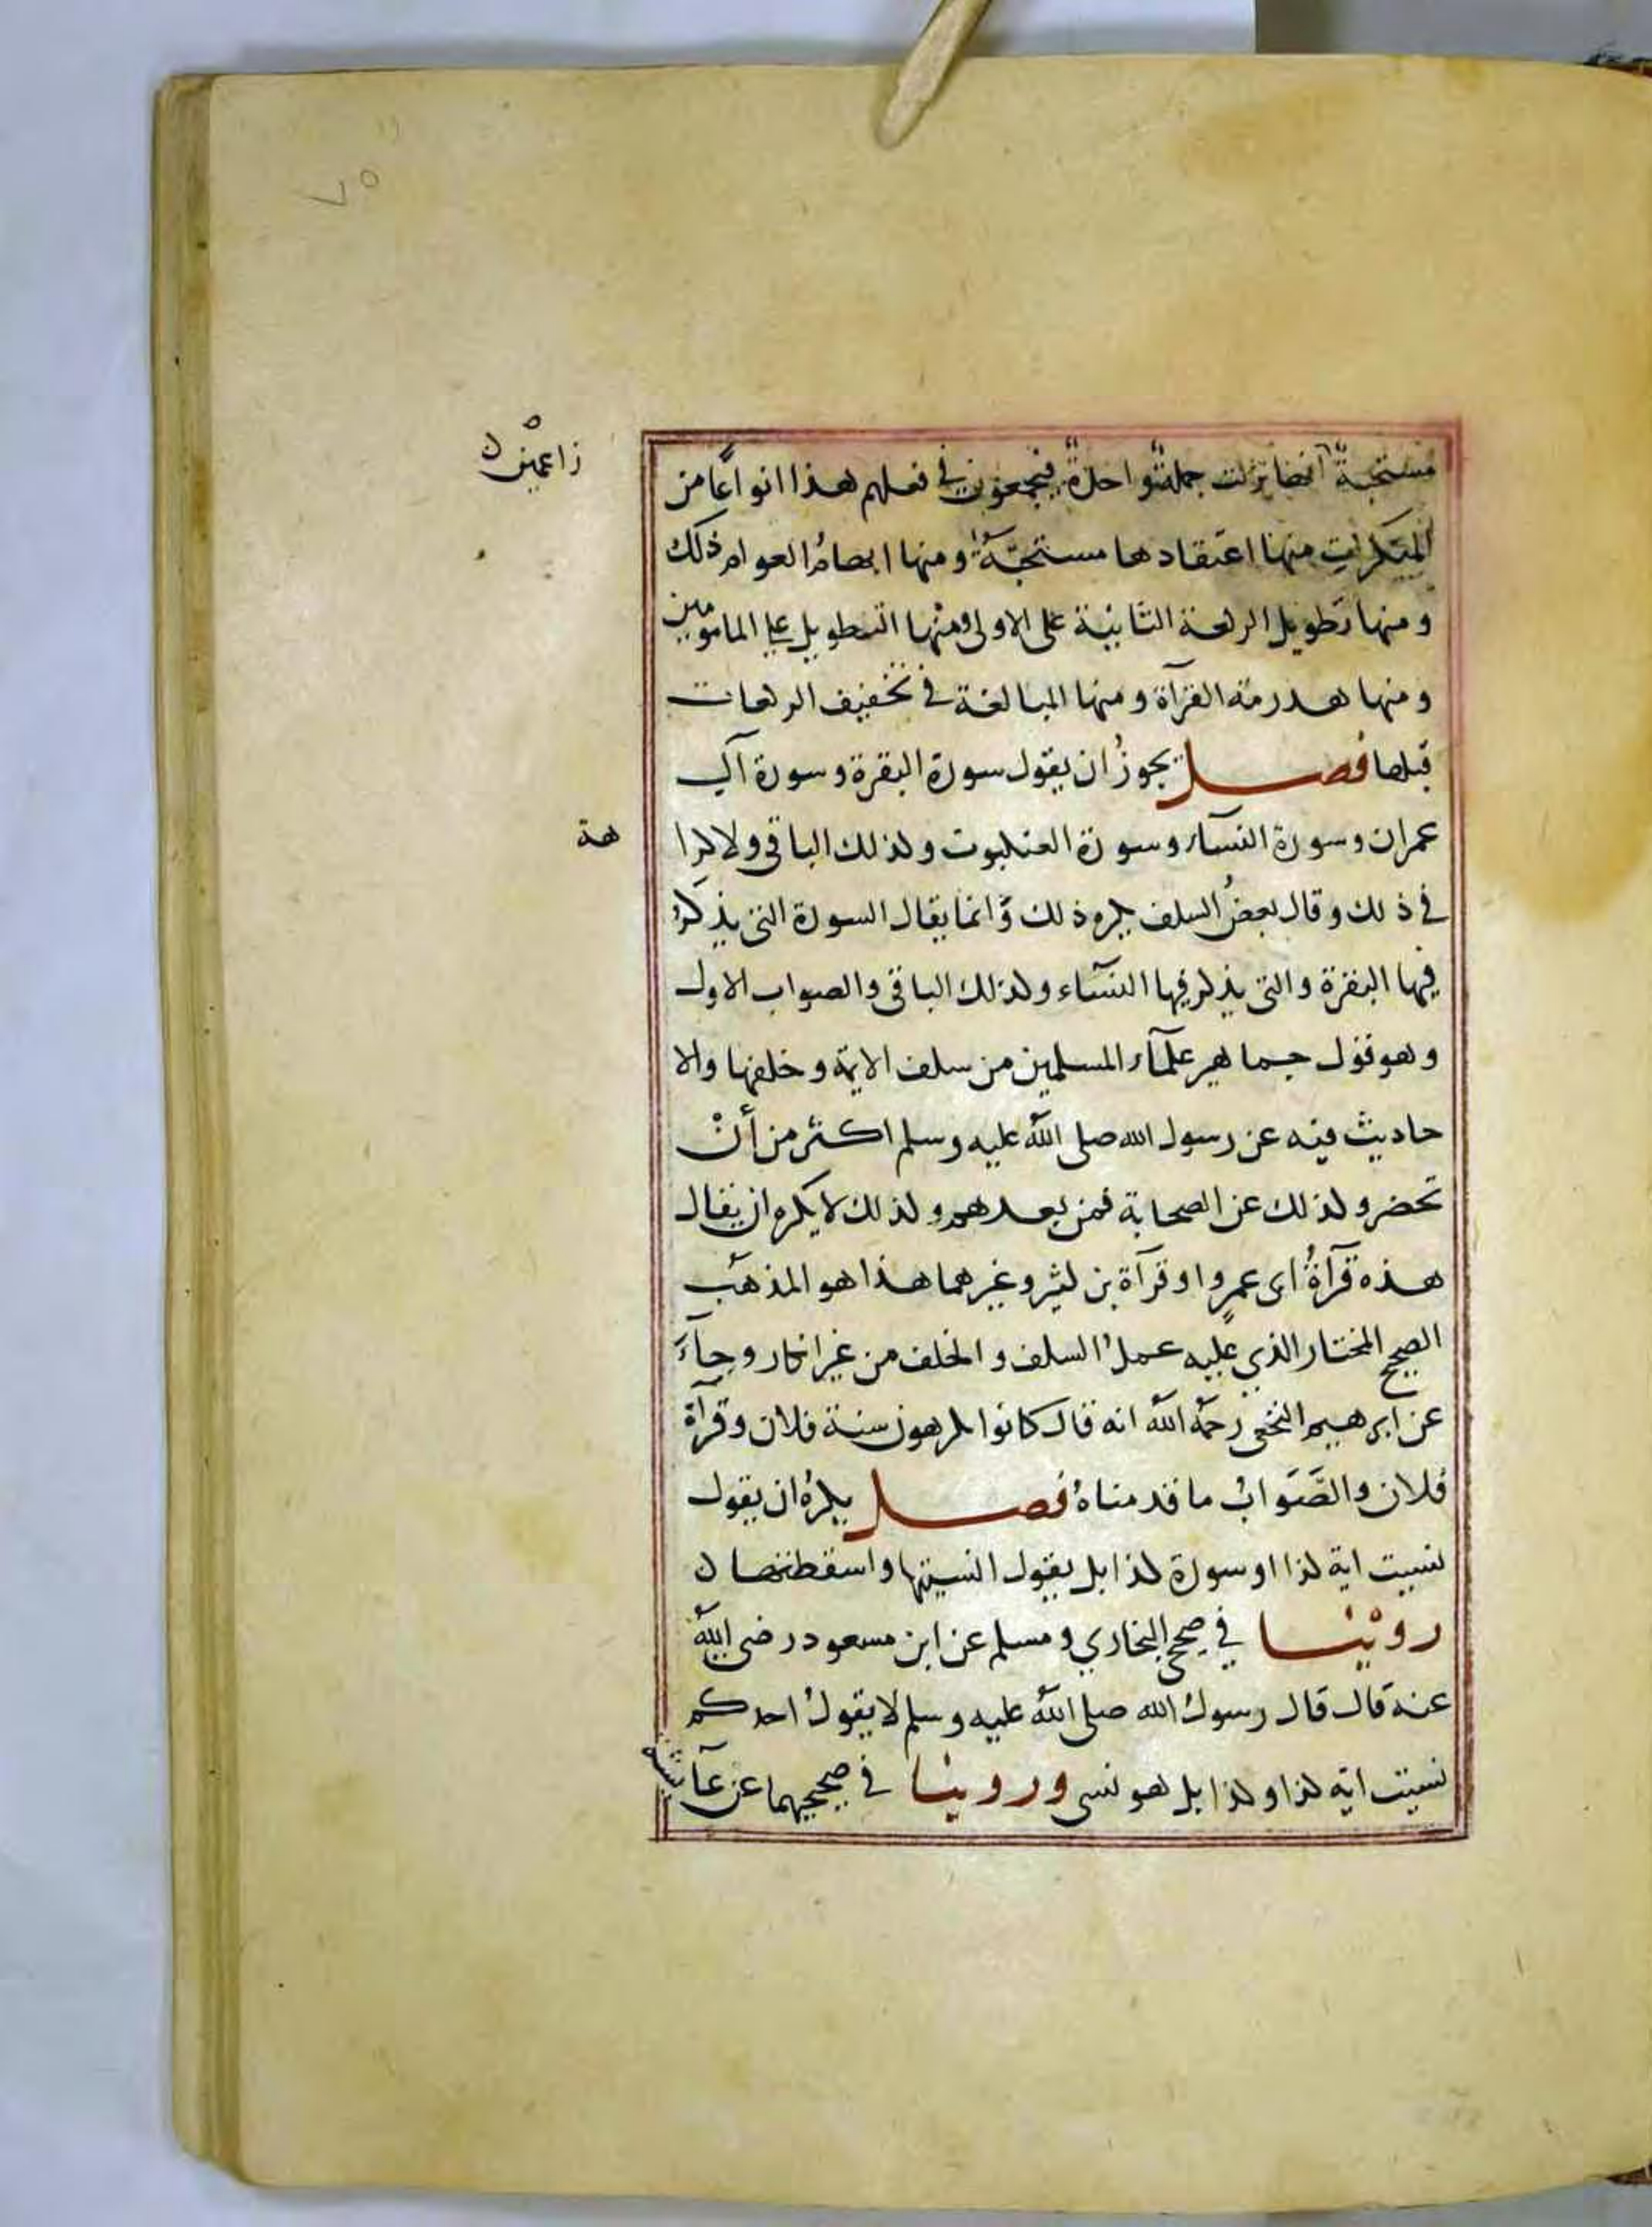 ٧٥
زاعمين
مستحبة انها نزلت جملة واحدة فيجمعون في فعلهم هذا انواعًا من
المنكرات منها اعتقادها مستحبّة ومنها ايهامُ العوام ذلك
ومنها تطويل الركعة الثانية على الاولى ومنها التطويل على المامومين
ومنها هذرمة القرآة ومنها المبالغة في تخفيف الركعات
قبلها فصل يجوزُ ان يقول سورة البقرة وسورة آل
عمران وسورة النسآء وسورة العنكبوت وكذلك الباقي ولا كرا
هة
في ذلك وقال بعضُ السلف يكره ذلك وانما يقال السورة التي يذكر
فيها البقرة والتي يذكر فيها النسآء وكذلك الباقي والصواب الاول
وهو قول جماهير علمآء المسلمين من سلف الامة وخلفها والا
حاديث فيه عن رسول الله صلى الله عليه وسلم اكثر من أنْ
تحصر وكذلك عن الصحابة فمن بعدهم وكذلك لا يكره ان يقال
هذه قرآةُ ابي عمرٍو او قرآة بن كثير وغيرهما هذا هو المذهب
الصحيح المختار الذي عليه عملُ السلف والخلف من غير انكار وجآءَ
عن ابرهيم النخعي رحمه الله انه قال كانوا يكرهون سنة فلان وقرآة
فلان والصَّوابُ ما قدمناهُ فصل يكرهُ ان يقول
نسيت اية كذا او سورة كذا بل يقول انسيتها واسقطتها ن
روينا في صحيح البخاري ومسلم عن ابن مسعود رضى الله
عنه قال قال رسولُ الله صلى الله عليه وسلم لا يقولُ احدكم
نسيت اية كذا وكذا بل هو نسى وروينا في صحيحيهما عن عآيشة